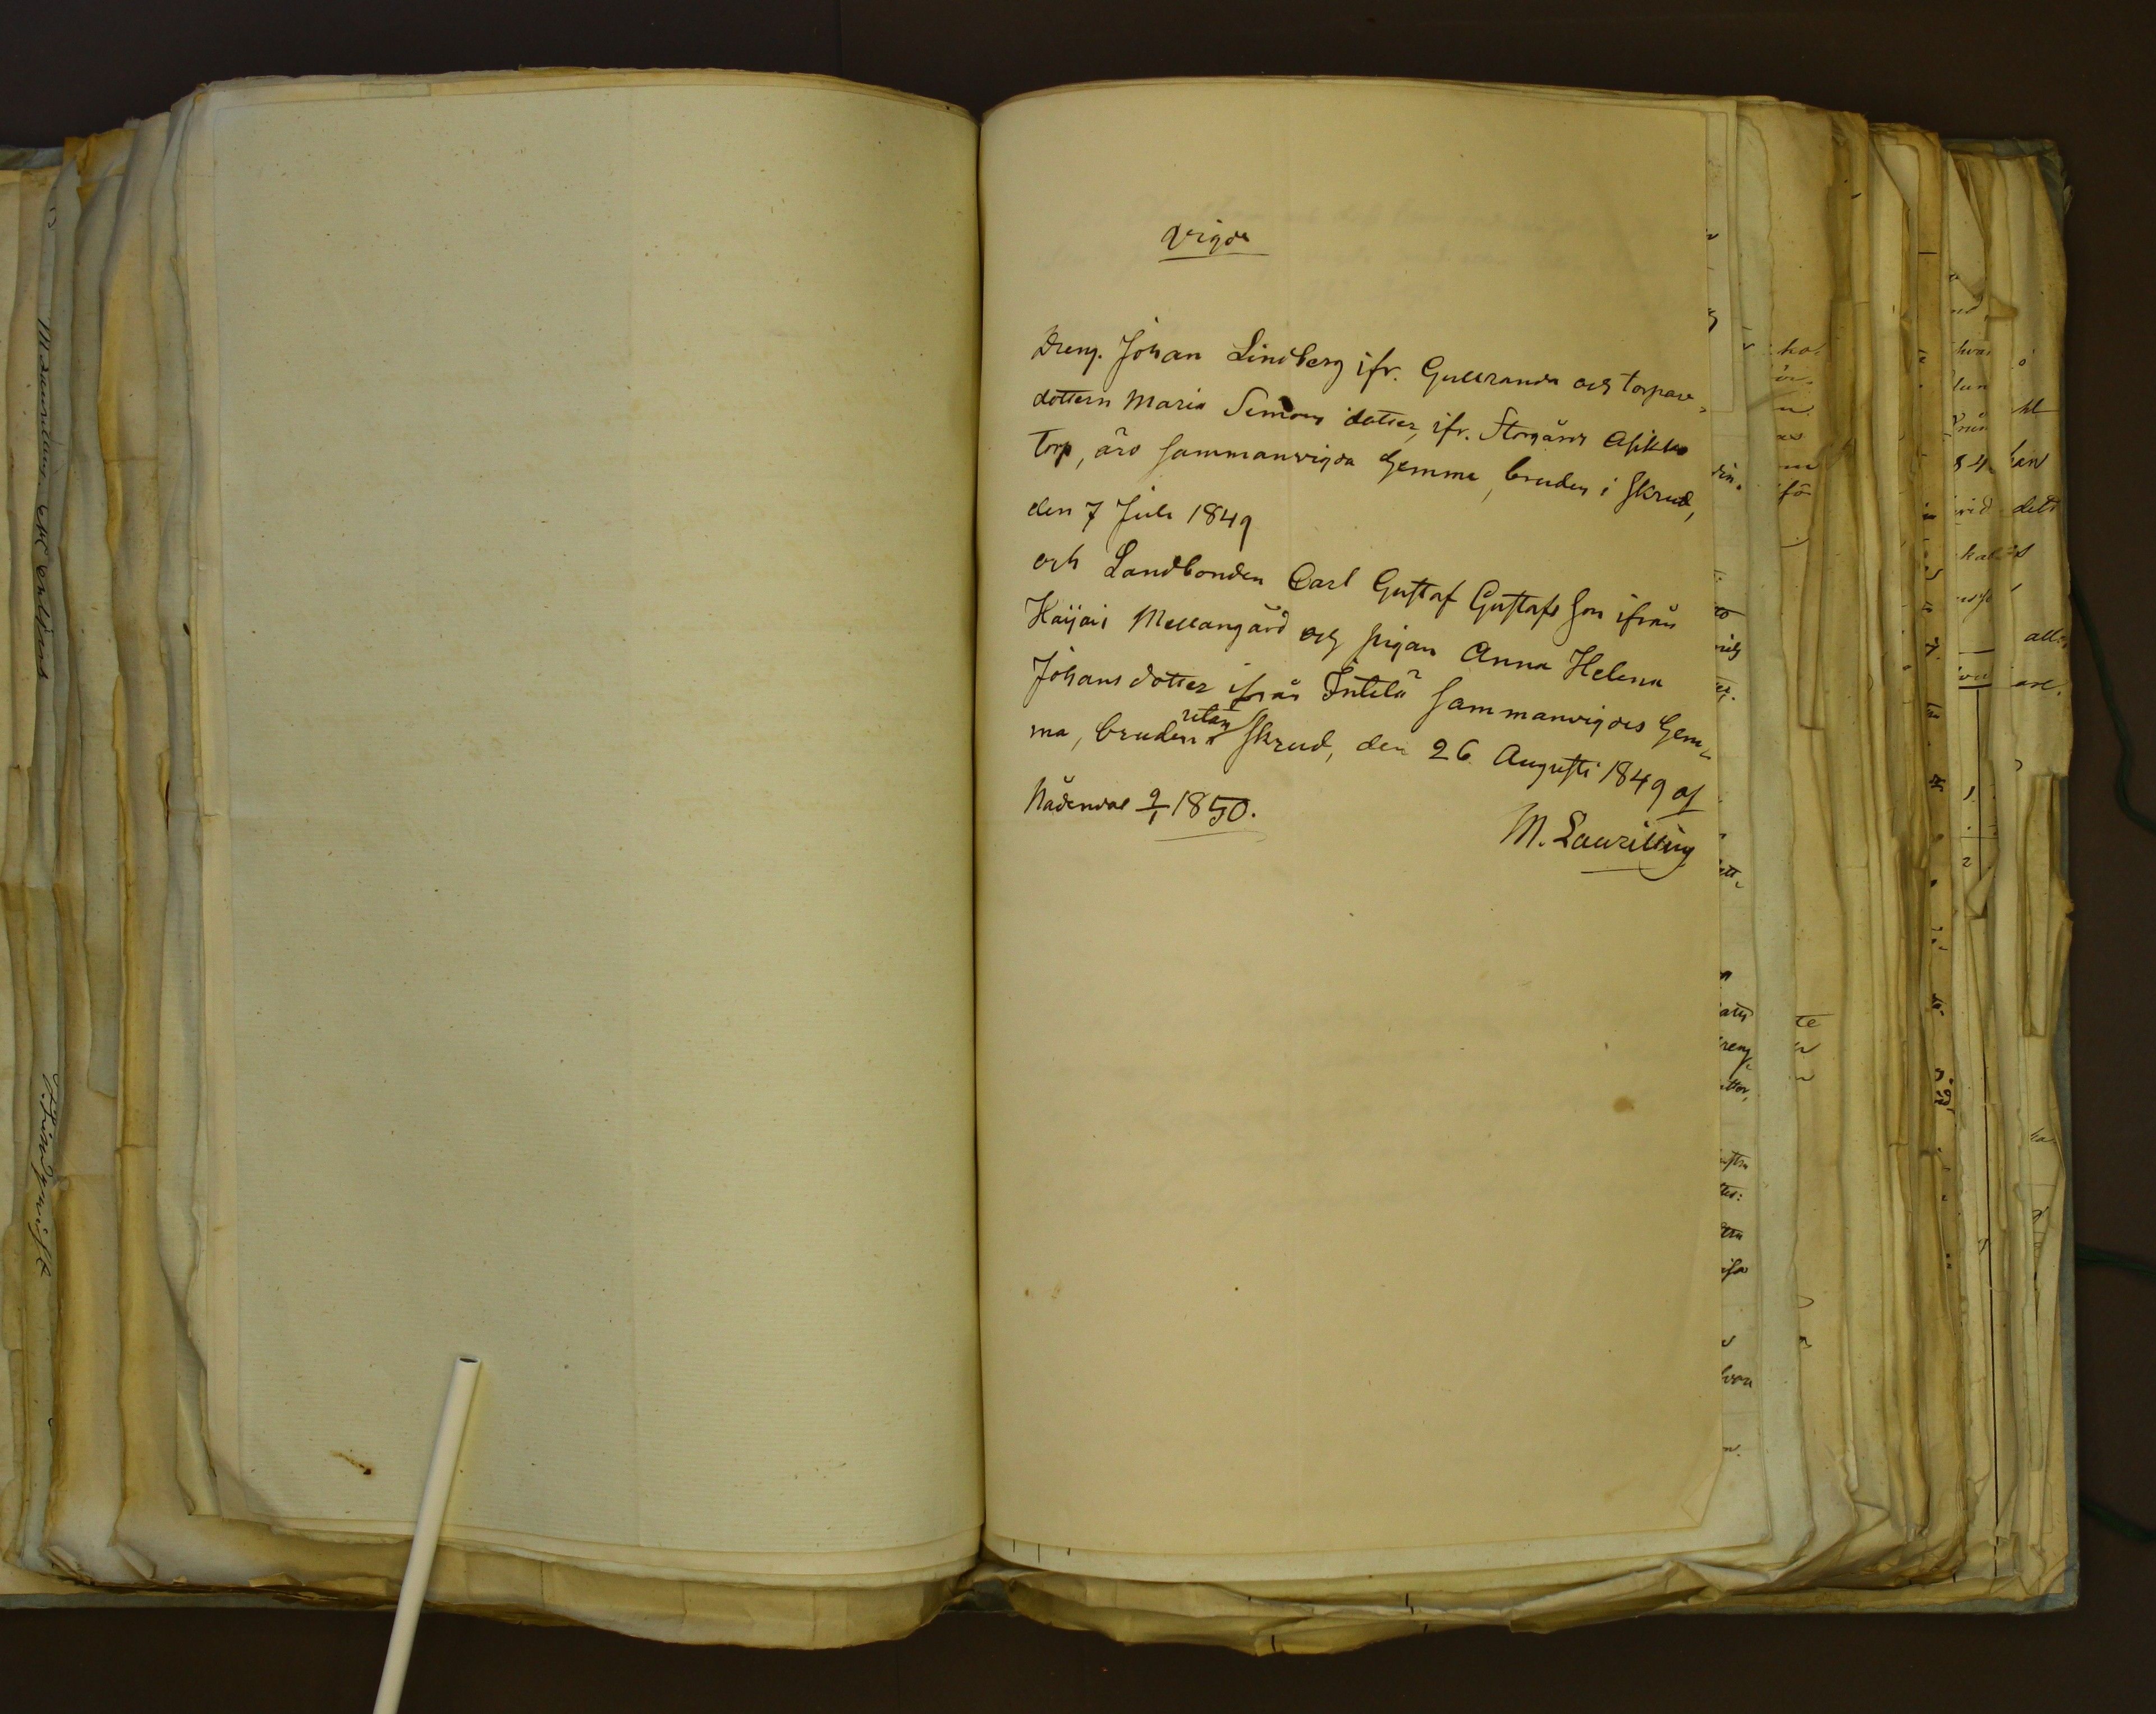 Vigde
Dreng. Johan Lindberg ifr. Gullranda och torpare-
dottern Maria Simons dotter, ifr. Storgårds Asikko
torp, äro sammanvigda hemma, bruden i skrud,
den 7 Juli 1849
och Landbonden Carl Gustaf Gustafs Son ifrån
Haijais Mellangård och pigan Anna Helena
Johans dotter ifrån Intilä sammanvigdes hem-
ma, bruden utan skrud, den 26 Augusti 1849 af
Nådendal 9/1 1850.
M. Laurillius